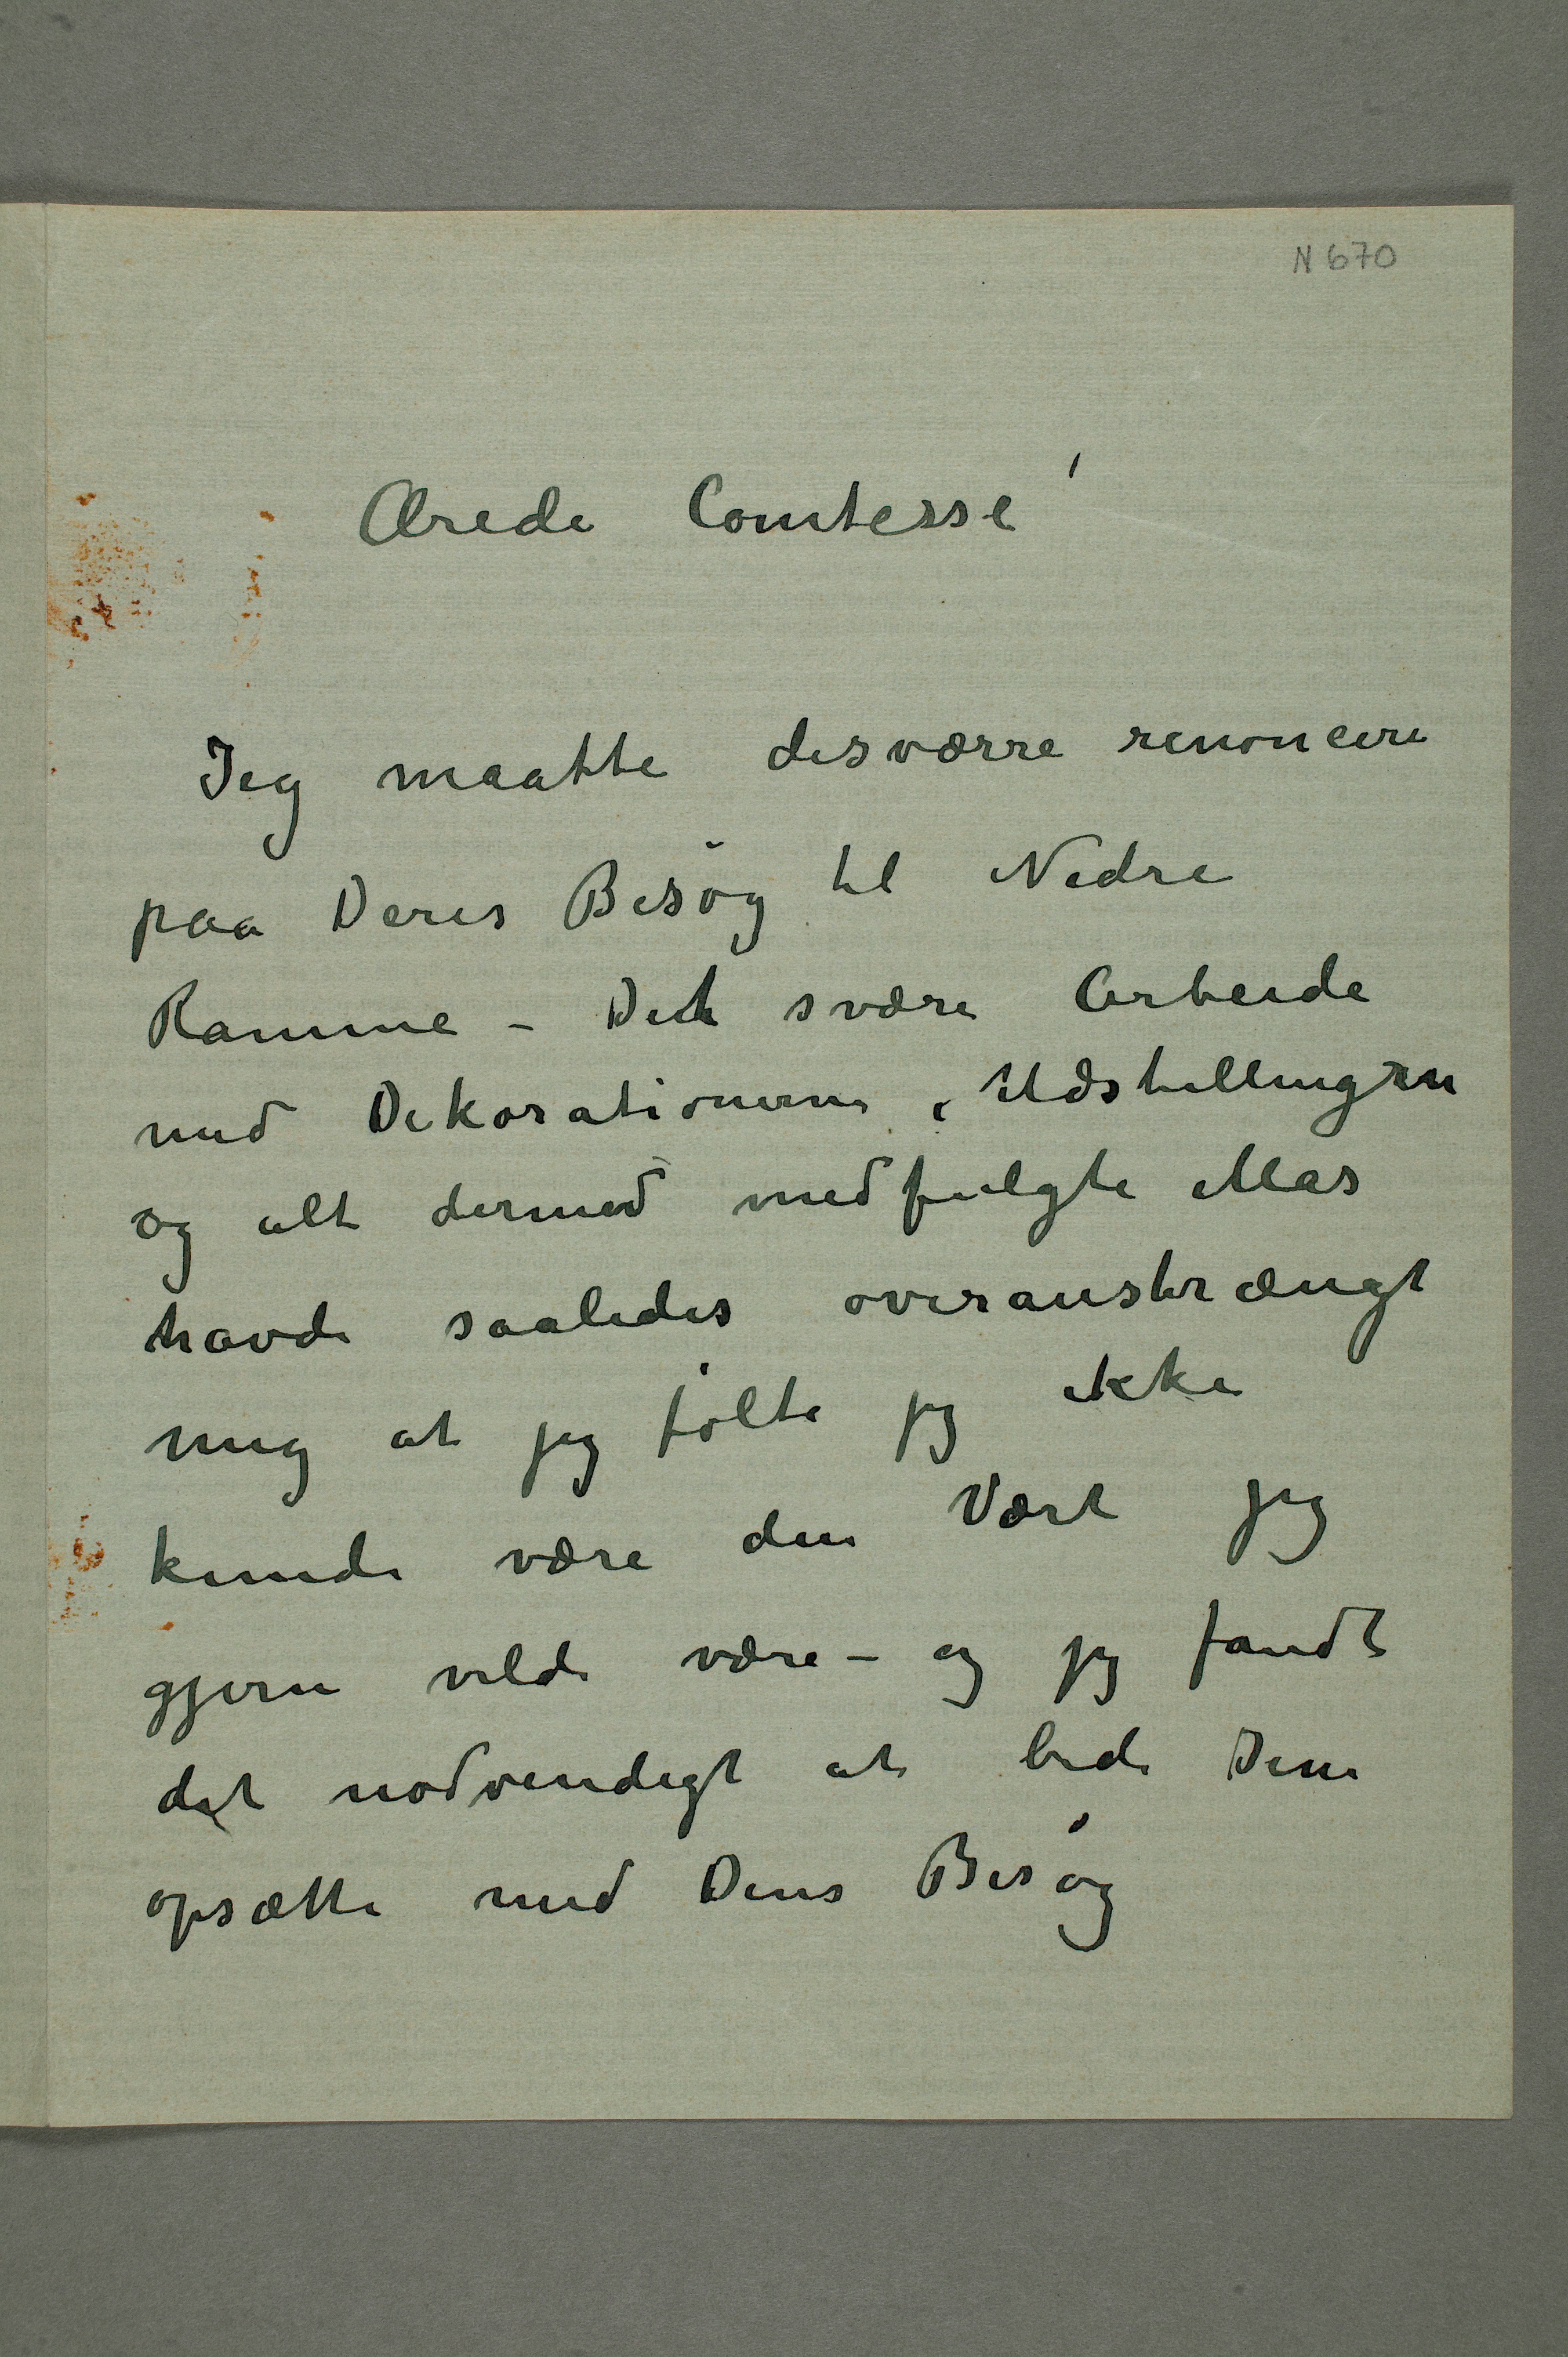 N 670
Ærede Comtesse'
Jeg maatte desværre renoncere
paa Deres Besøg til Nedre
Ramme – Det svære Arbeide
med Dekorationerne, Udstillingen
og alt dermed medfulgte Mas
havde saaledes overanstrængt
mig at jeg følte jeg ikke
kunde være den Vært jeg
gjerne vilde være – og jeg fandt
det nødvendigt at bede Dem
opsætte med Deres Besøg